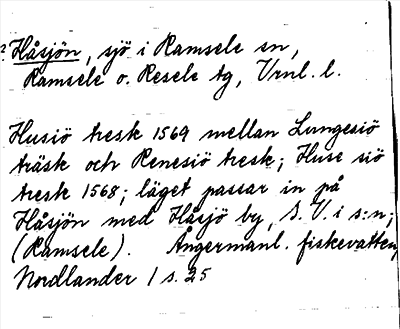 2. Håsjön, sjö i Ramsele sn,
Ramsele o. Resele tg, Vrnl. l.
Husiö tresk 1569 mellan Lungesiö
träsk och Renesiö tresk; Huse siö
tresk 1568; läget passar in på
Håsjön med Håsjö by, S.V. i s:n;
(Ramsele). Ångermanl. fiskevatten,
Nordlander 1 s. 25